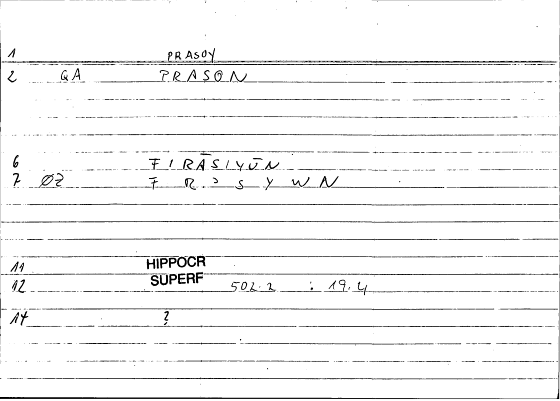 1 PRASOY
2 GA PRASON
6 FIRĀSIYŪN
7 ØZ F R ɔ S Y W N
11 HIPPOCR
12 SUPERF 502.2 : 19.4
14 ?